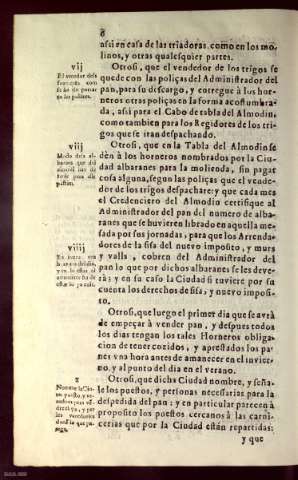 6
assi en casa de las triadoras, como en los mo-
linos, y otras qualesquier partes.
vij
El vendedor dels
Otrosi, que el vendedor de los trigos se
quede con las poliças del Administrador del
pan, para su descargo, y corregue à los hor-
neros otras poliças en la forma acostumbra-
da, assi para el Cabo de tabla del Almodin,
como tambien para los Regidores de los tri-
gos que se iran despachando.
viij
Otrosi, que en la Tabla del Almodin se
dèn à los horneros nombrados por la Ciu-
dad albaranes para la molienda, sin pagar
cosa alguna, segun las poliças que el vende-
dor de los trigos despachare: y que cada mes
el Credenciero del Almodin certifique al
Administrador del pan del numero de alba-
ranes que se huvieren librado en aquella me-
sada por sus jornadas, para que los Arrenda-
dores de la sisa del nuevo imposito, y murs
y valls, cobren del Administrador del
pan lo que por dichos albaranes se les deve-
rà; y en su caso la Ciudad si tuviere por su
cuenta los derechos de sisa, y nuevo imposi-
to.
viiij
Otrosi, que luego el primer dia que se avrà
de empeçar à vender pan, y despues todos
los dias tengan los tales Horneros obliga-
cion de tener cozidos, y aprestados los pa-
nes vna hora antes de amanecer en el invier-
no, y al punto del dia en el verano.
x
Otrosi, que dicha Ciudad nombre, y seña-
le los puestos, y personas necessarias para la
despedida del pan: y en particular parecen à
proposito los puestos cercanos à las carni-
cerias que por la Ciudad están repartidas:
y que